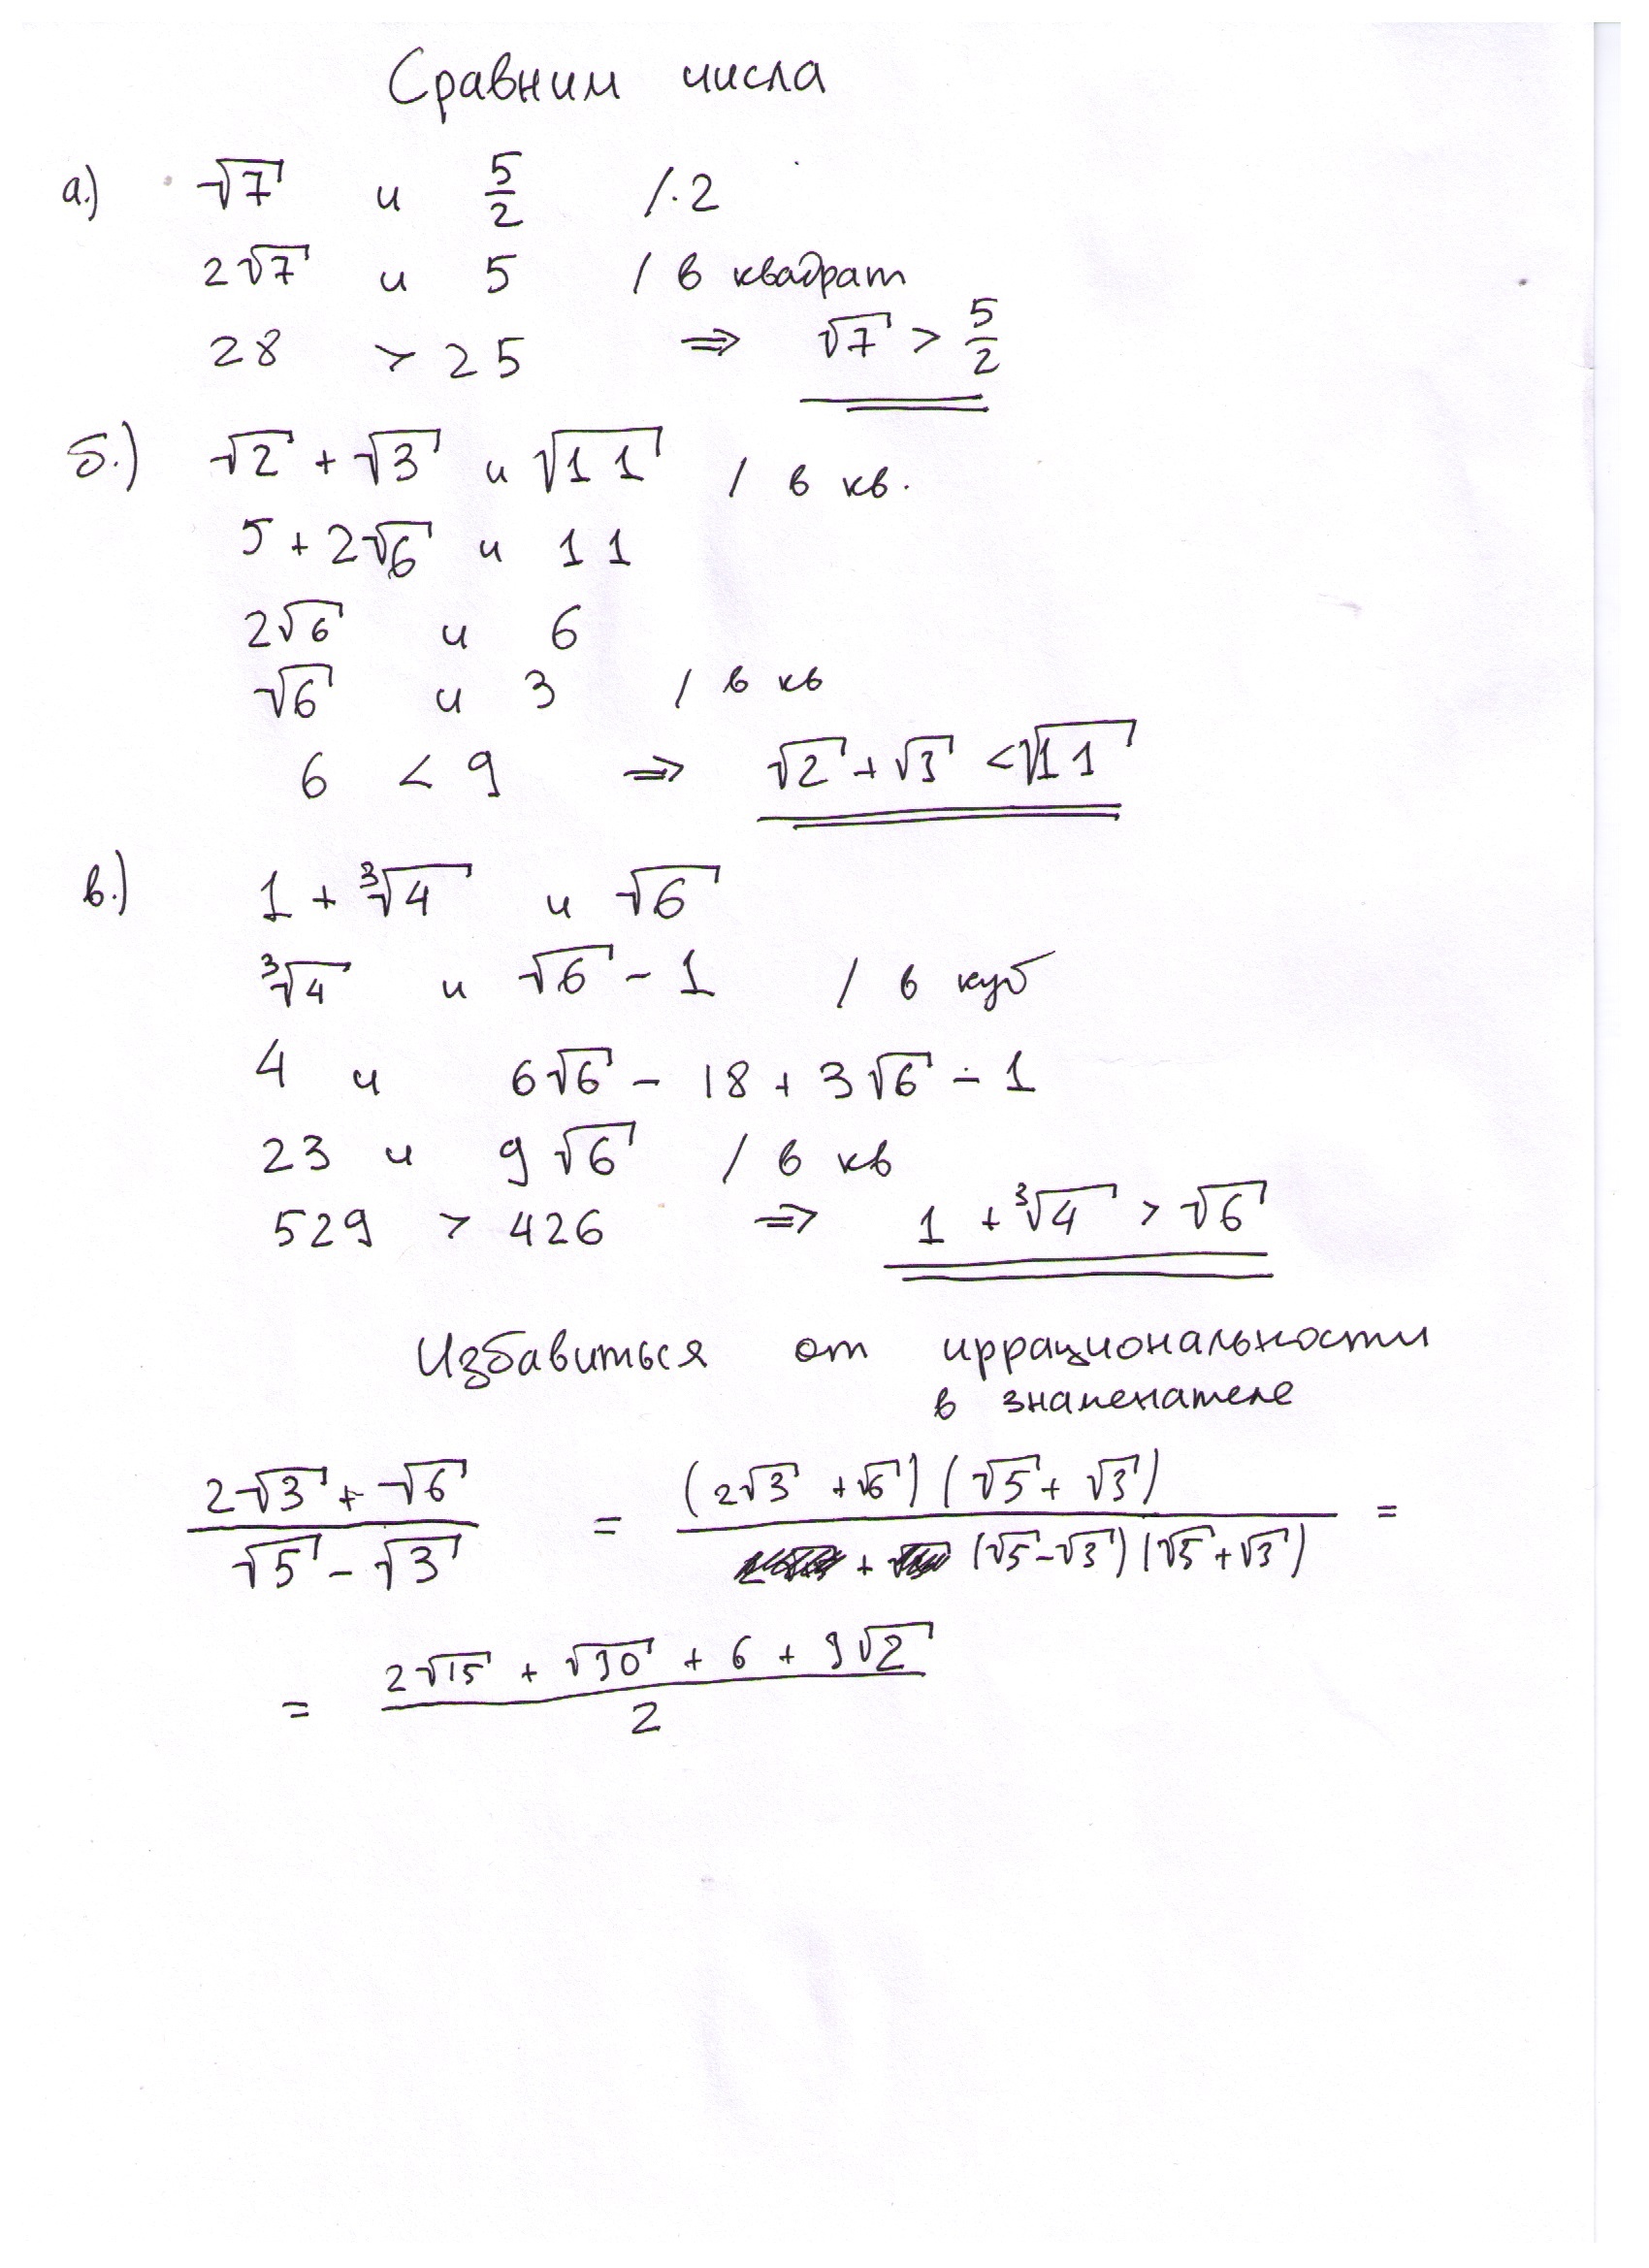 Сравним числа
а.) √7 и 5/2 /·2
2√7 и 5 / в квадрат
28 > 25 ⇒ √7 > 5/2
б.) √2 + √3 и √11 / в кв.
5 + 2√6 и 11
2√6 и 6
√6 и 3 / в кв
6 < 9 ⇒ √2 + √3 < √11
в.) 1 + ∛4 и √6
∛4 и √6 - 1 / в куб
4 и 6√6 - 18 + 3√6 - 1
23 и 9√6 / в кв
529 > 426 ⇒ 1 + ∛4 > √6
Избавиться от иррациональности
в знаменателе
(2√3 + √6)/(√5 - √3) = (2√3 + √6)(√5 + √3)/(√5 - √3)(√5 + √3) =
= (2√15 + √30 + 6 + 3√2)/2